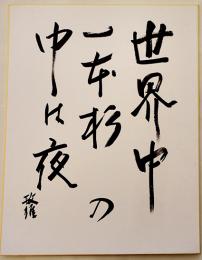 世界中
一本杉の
中は夜
敏雄